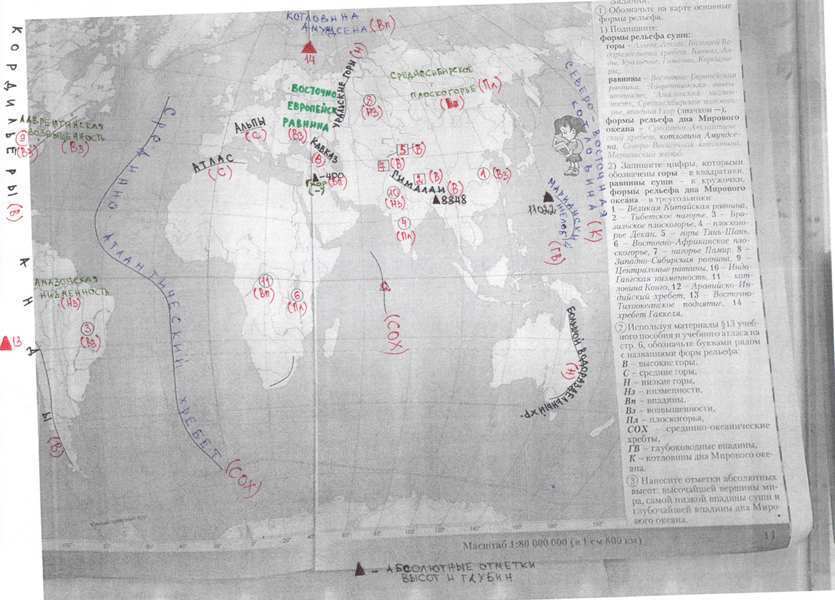 КОТЛОВИНА
АМУНДСЕНА (Вп)
14
КОРДИЛЬЕРЫ (В)
ЛАВРЕНТИЙСКАЯ
ВОЗВЫШЕННОСТЬ
(Вз)
9
(Вз)
СРЕДИННО
АТЛАНТИЧЕСКИЙ ХРЕБЕТ (СОХ)
АЛЬПЫ
(С)
АТЛАС
(С)
ВОСТОЧНО
ЕВРОПЕЙСК
РАВНИНА
(Вз)
УРАЛЬСКИЕ ГОРЫ (Н)
8
СРЕДНЕСИБИРСКОЕ
ПЛОСКОГОРЬЕ (Пл)
КАВКАЗ
(В)
-400
(-)
(Вп)
5 (В)
(В)
2 (В)
ГИМАЛАИ (В)
8848
10
(Нз)
4
(Пл)
1 (Вз)
СЕВЕРО-ВОСТОЧНАЯ
КОТЛОВИНА (К)
11022
(ГВ)
АМАЗОНСКАЯ
НИЗМЕННОСТЬ
(Нз)
3
(Вз)
13
АНДЫ
(В)
11
(Вп)
6
(Пл)
(СОХ)
БОЛЬШОЙ ВОДОРАЗДЕЛЬНЫЙ ХР-
(Н)
1 Обозначьте на карте основные
формы рельефа.
1) Подпишите:
формы рельефа суши:
горы –
равнины – Восточно-Европейская
формы рельефа дна Мирового
океана –
2) Запишите цифры, которыми
обозначены горы – в квадратики,
равнины суши – в кружочки,
формы рельефа дна Мирового
океана – в треугольники:
1 – Великая Китайская равнина,
2 – Тибетское нагорье, 3 – Бра-
зильское плоскогорье, 4 – плоского-
рье Декан, 5 – горы Тянь-Шань,
6 – Восточно-Африканское пло-
скогорье, 7 – нагорье Памир, 8 –
Западно-Сибирская равнина, 9 –
Центральные равнины, 10 – Индо-
Гангская низменность, 11 – кот-
ловина Конго, 12 – Аравийско-Ин-
дийский хребет, 13 – Восточно-
Тихоокеанское поднятие, 14 –
хребет Гаккеля.
2 Используя материалы §13 учеб-
ного пособия и учебного атласа на
стр. 6, обозначьте буквами рядом
с названиями форм рельефа:
В – высокие горы,
С – средние горы,
Н – низкие горы,
Нз – низменности,
Вп – впадины,
Вз – возвышенности,
Пл – плоскогорья,
СОХ – срединно-океанические
хребты,
ГВ – глубоководные впадины,
К – котловины дна Мирового оке-
ана.
3 Нанесите отметки абсолютных
высот: высочайшей вершины ми-
ра, самой низкой впадины суши и
глубочайшей впадины дна Миро-
вого океана.
Масштаб 1:80 000 000 (в 1 см 800 км)
11
– АБСОЛЮТНЫЕ ОТМЕТКИ
ВЫСОТ И ГЛУБИН